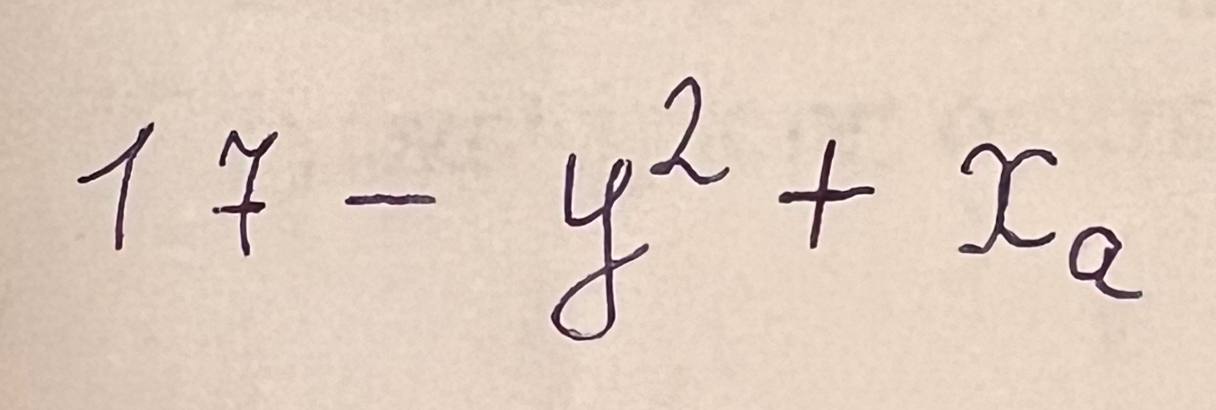 17 - y² + xₐ